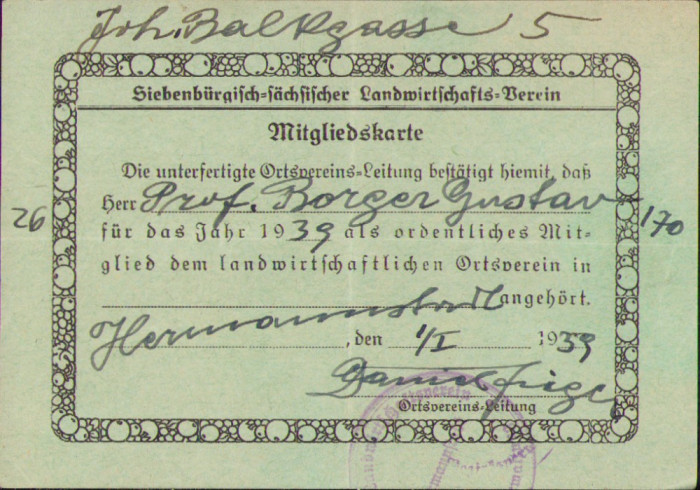 Joh. Baltgasse 5
Siebenbürgisch-sächsischer Landwirtschafts-Verein
Mitgliedskarte
Die unterfertigte Ortsvereins-Leitung bestätigt hiemit, daß
Herr Prof. Borger Gustav
26
170
für das Jahr 1939 als ordentliches Mit-
glied dem landwirtschaftlichen Ortsverein in
Hermannstadt angehört.
, den 1/I 1939
Daniel
Ortsvereins-Leitung